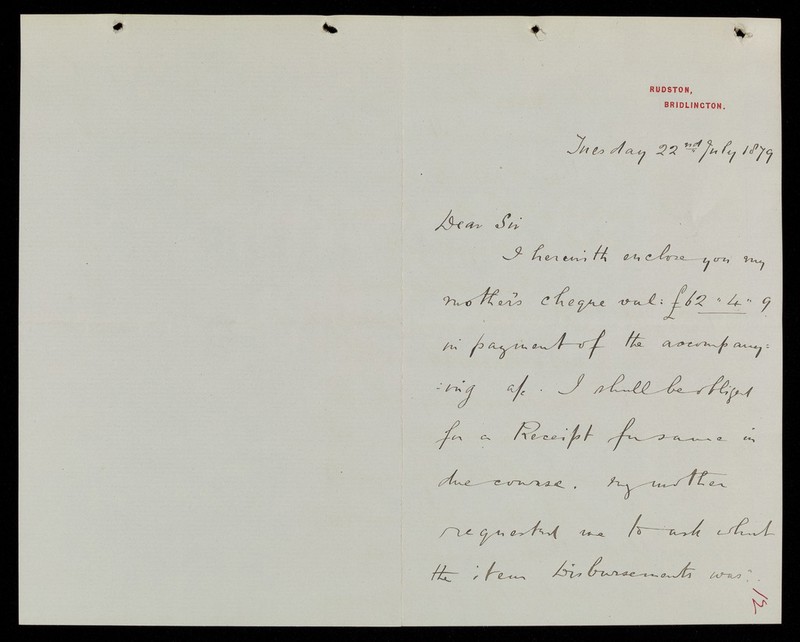 RUDSTON,
BRIDLINGTON.
Tuesday 22nd July 1879
Dear Sir
I herewith enclose you my
mother's cheque val: £62 " 4 " 9
in payment of the accompany=
=ing a/c. I shall be obliged
for a Receipt for same in
due course. My mother
requested me to ask what
the item Disbursements was: